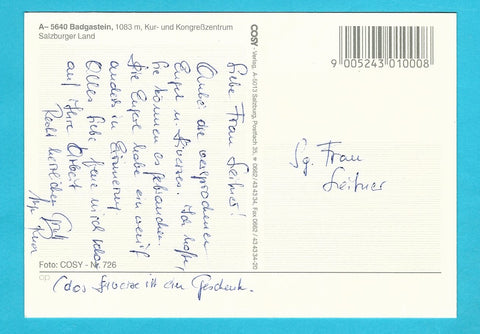 A– 5640 Badgastein, 1083 m, Kur- und Kongreßzentrum
Salzburger Land
Liebe Frau Leitner!
Anbei die versprochenen
Engel u. Diverses. Ich hoffe,
Sie können es gebrauchen.
Die Engel habe ich ein wenig
anders in Erinnerung
Alles Liebe freue mich schon
auf Ihre Arbeit
Recht herzlichen Gruß
(das Diverse ist ein Geschenk.
Foto: COSY - Nr. 726
COSY - Verlag, A-5013 Salzburg, Postfach 35, ☎ 0662 / 43 43 34, Fax 0662 / 43 43 34-20
9 005243 010008
Frau
Leitner